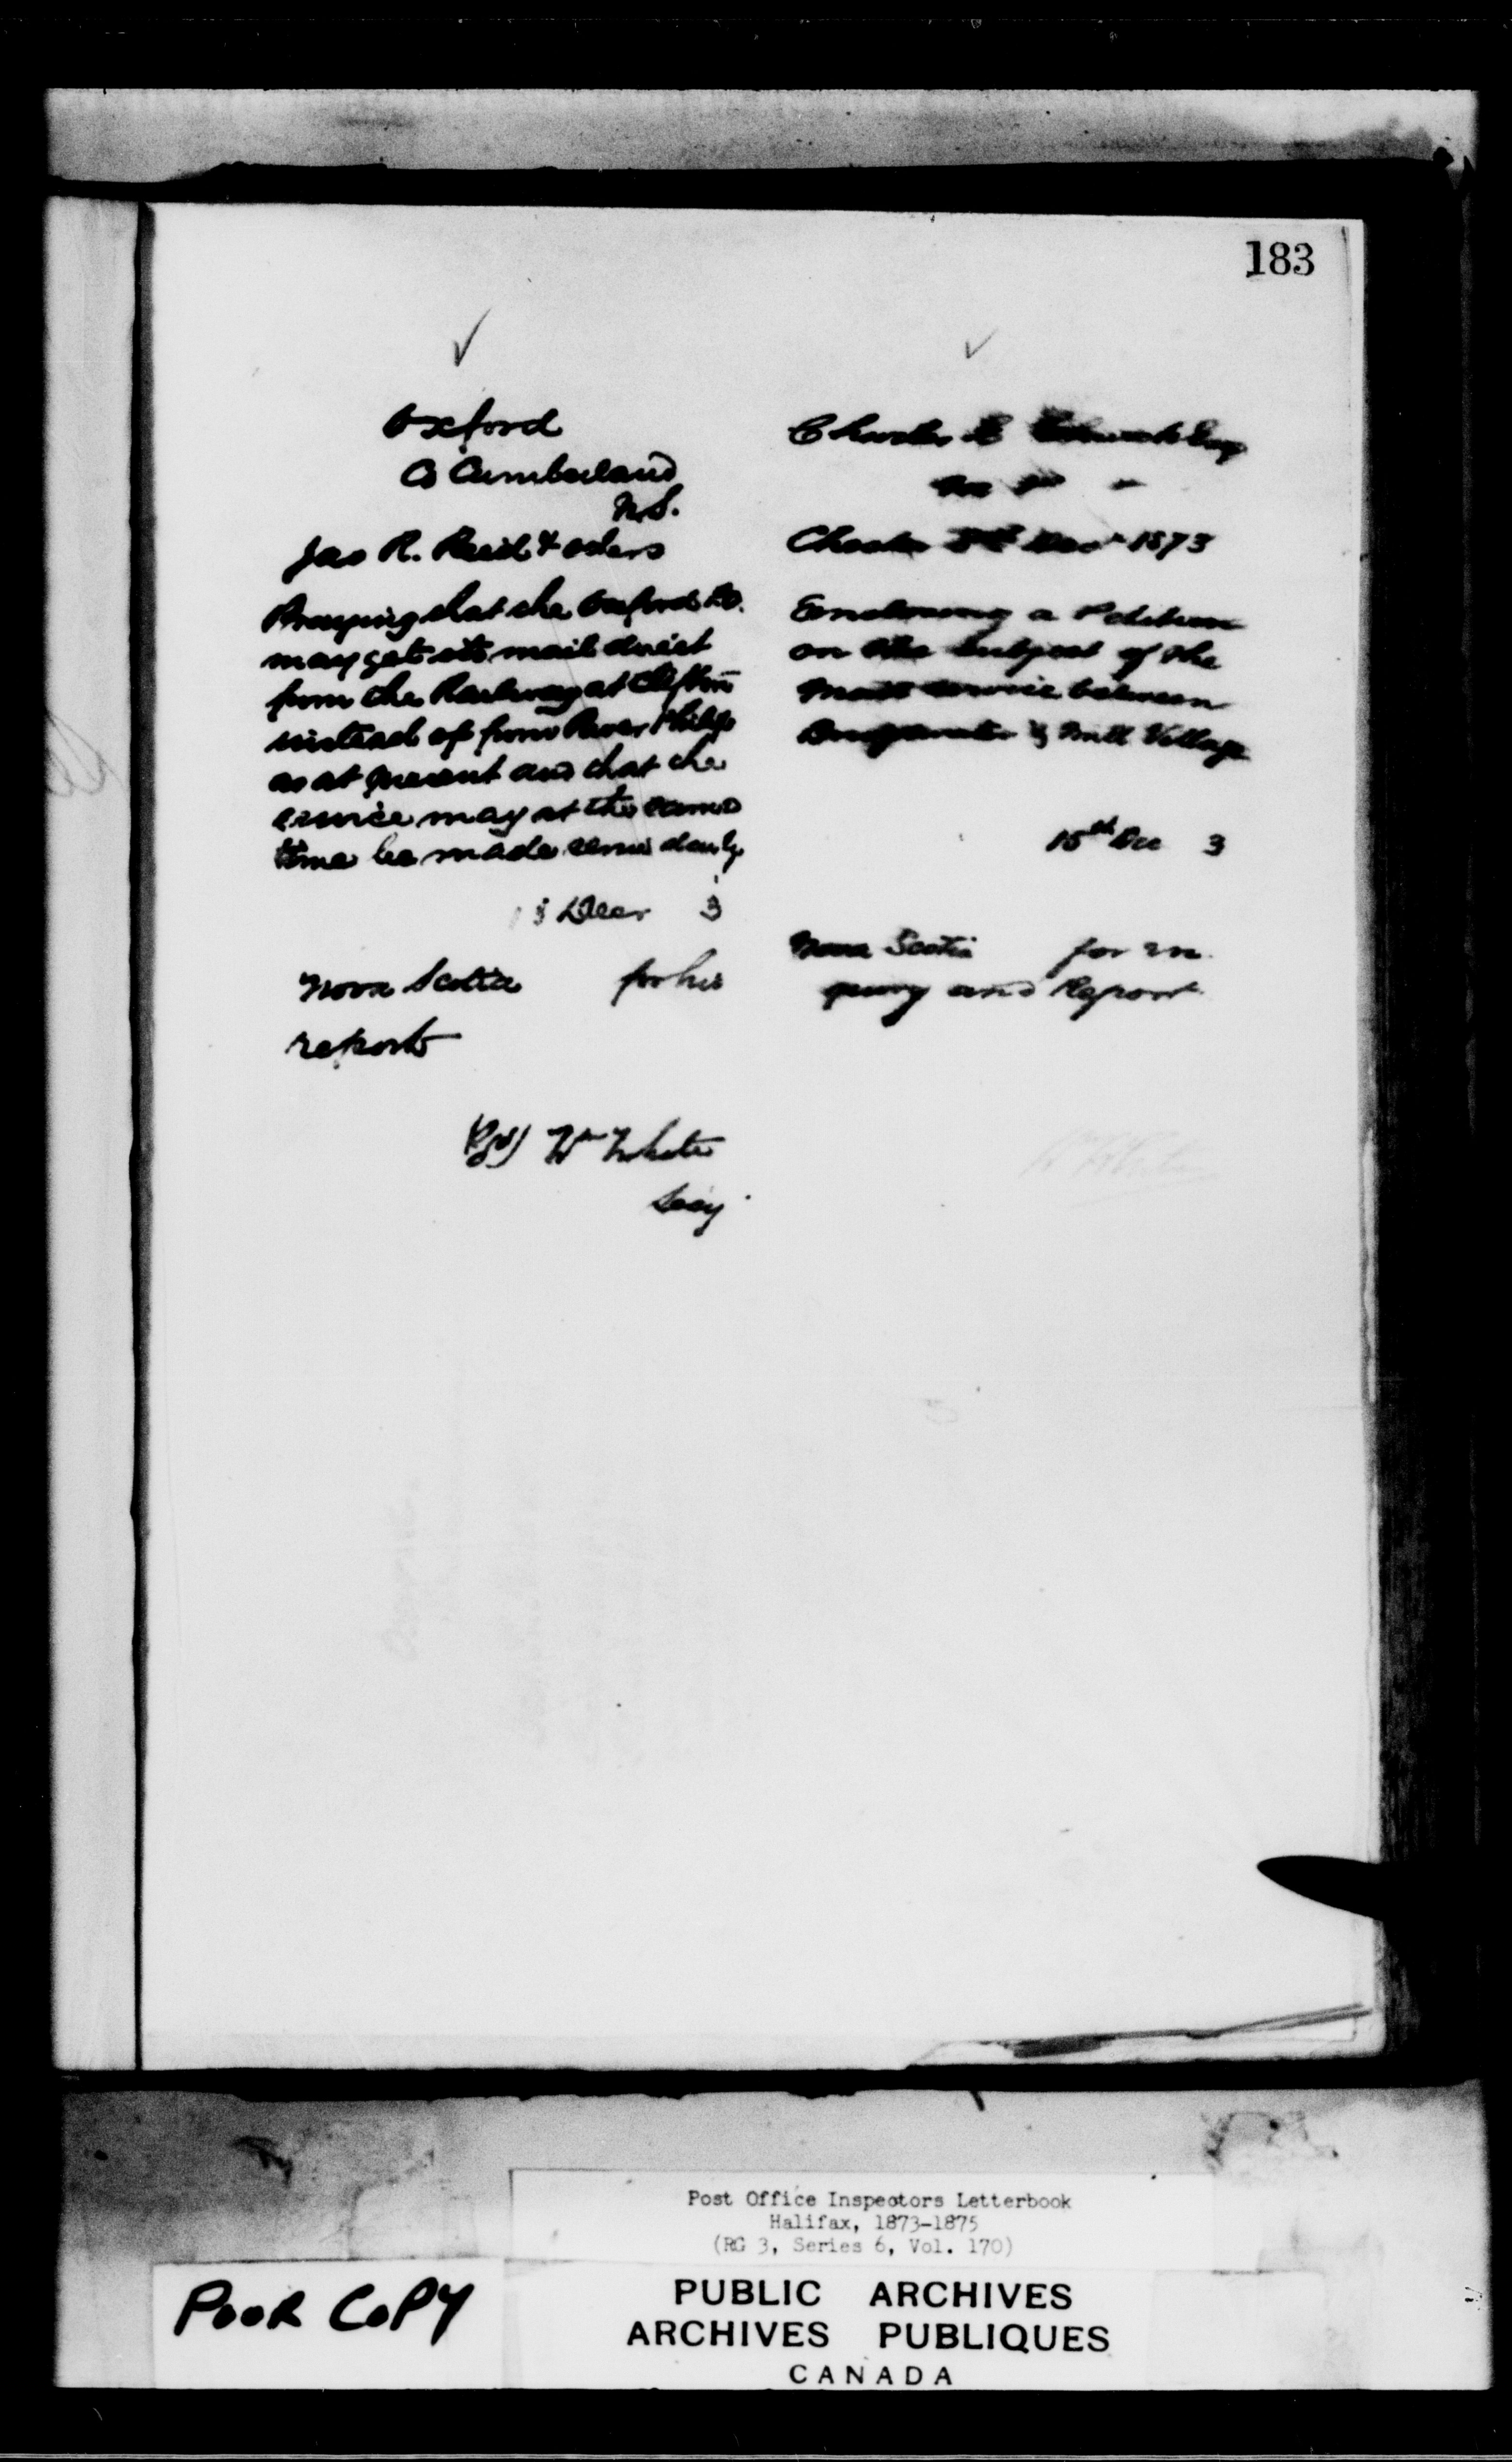 183
Oxford
Co Cumberland
N.S.
Jas R. Reid & others
Praying that the Oxford P.O.
may get its mail direct
from the Railway at Clifton
instead of from River Philip
as at present and that the
service may at the same
time be made semi daily
Decr 3
Nova Scotia for his
report
(Sgd) Wm White
Secy
Charles E
Chester 1873
Enclosing a Petition
on the subject of the
Mail service between
Bridgewater & Mill Village
15th Dec 3
Nova Scotia for in
quiry and Report
Post Office Inspectors Letterbook
Halifax, 1873-1875
(RG 3, Series 6, Vol. 170)
POOR COPY
PUBLIC ARCHIVES
ARCHIVES PUBLIQUES
CANADA